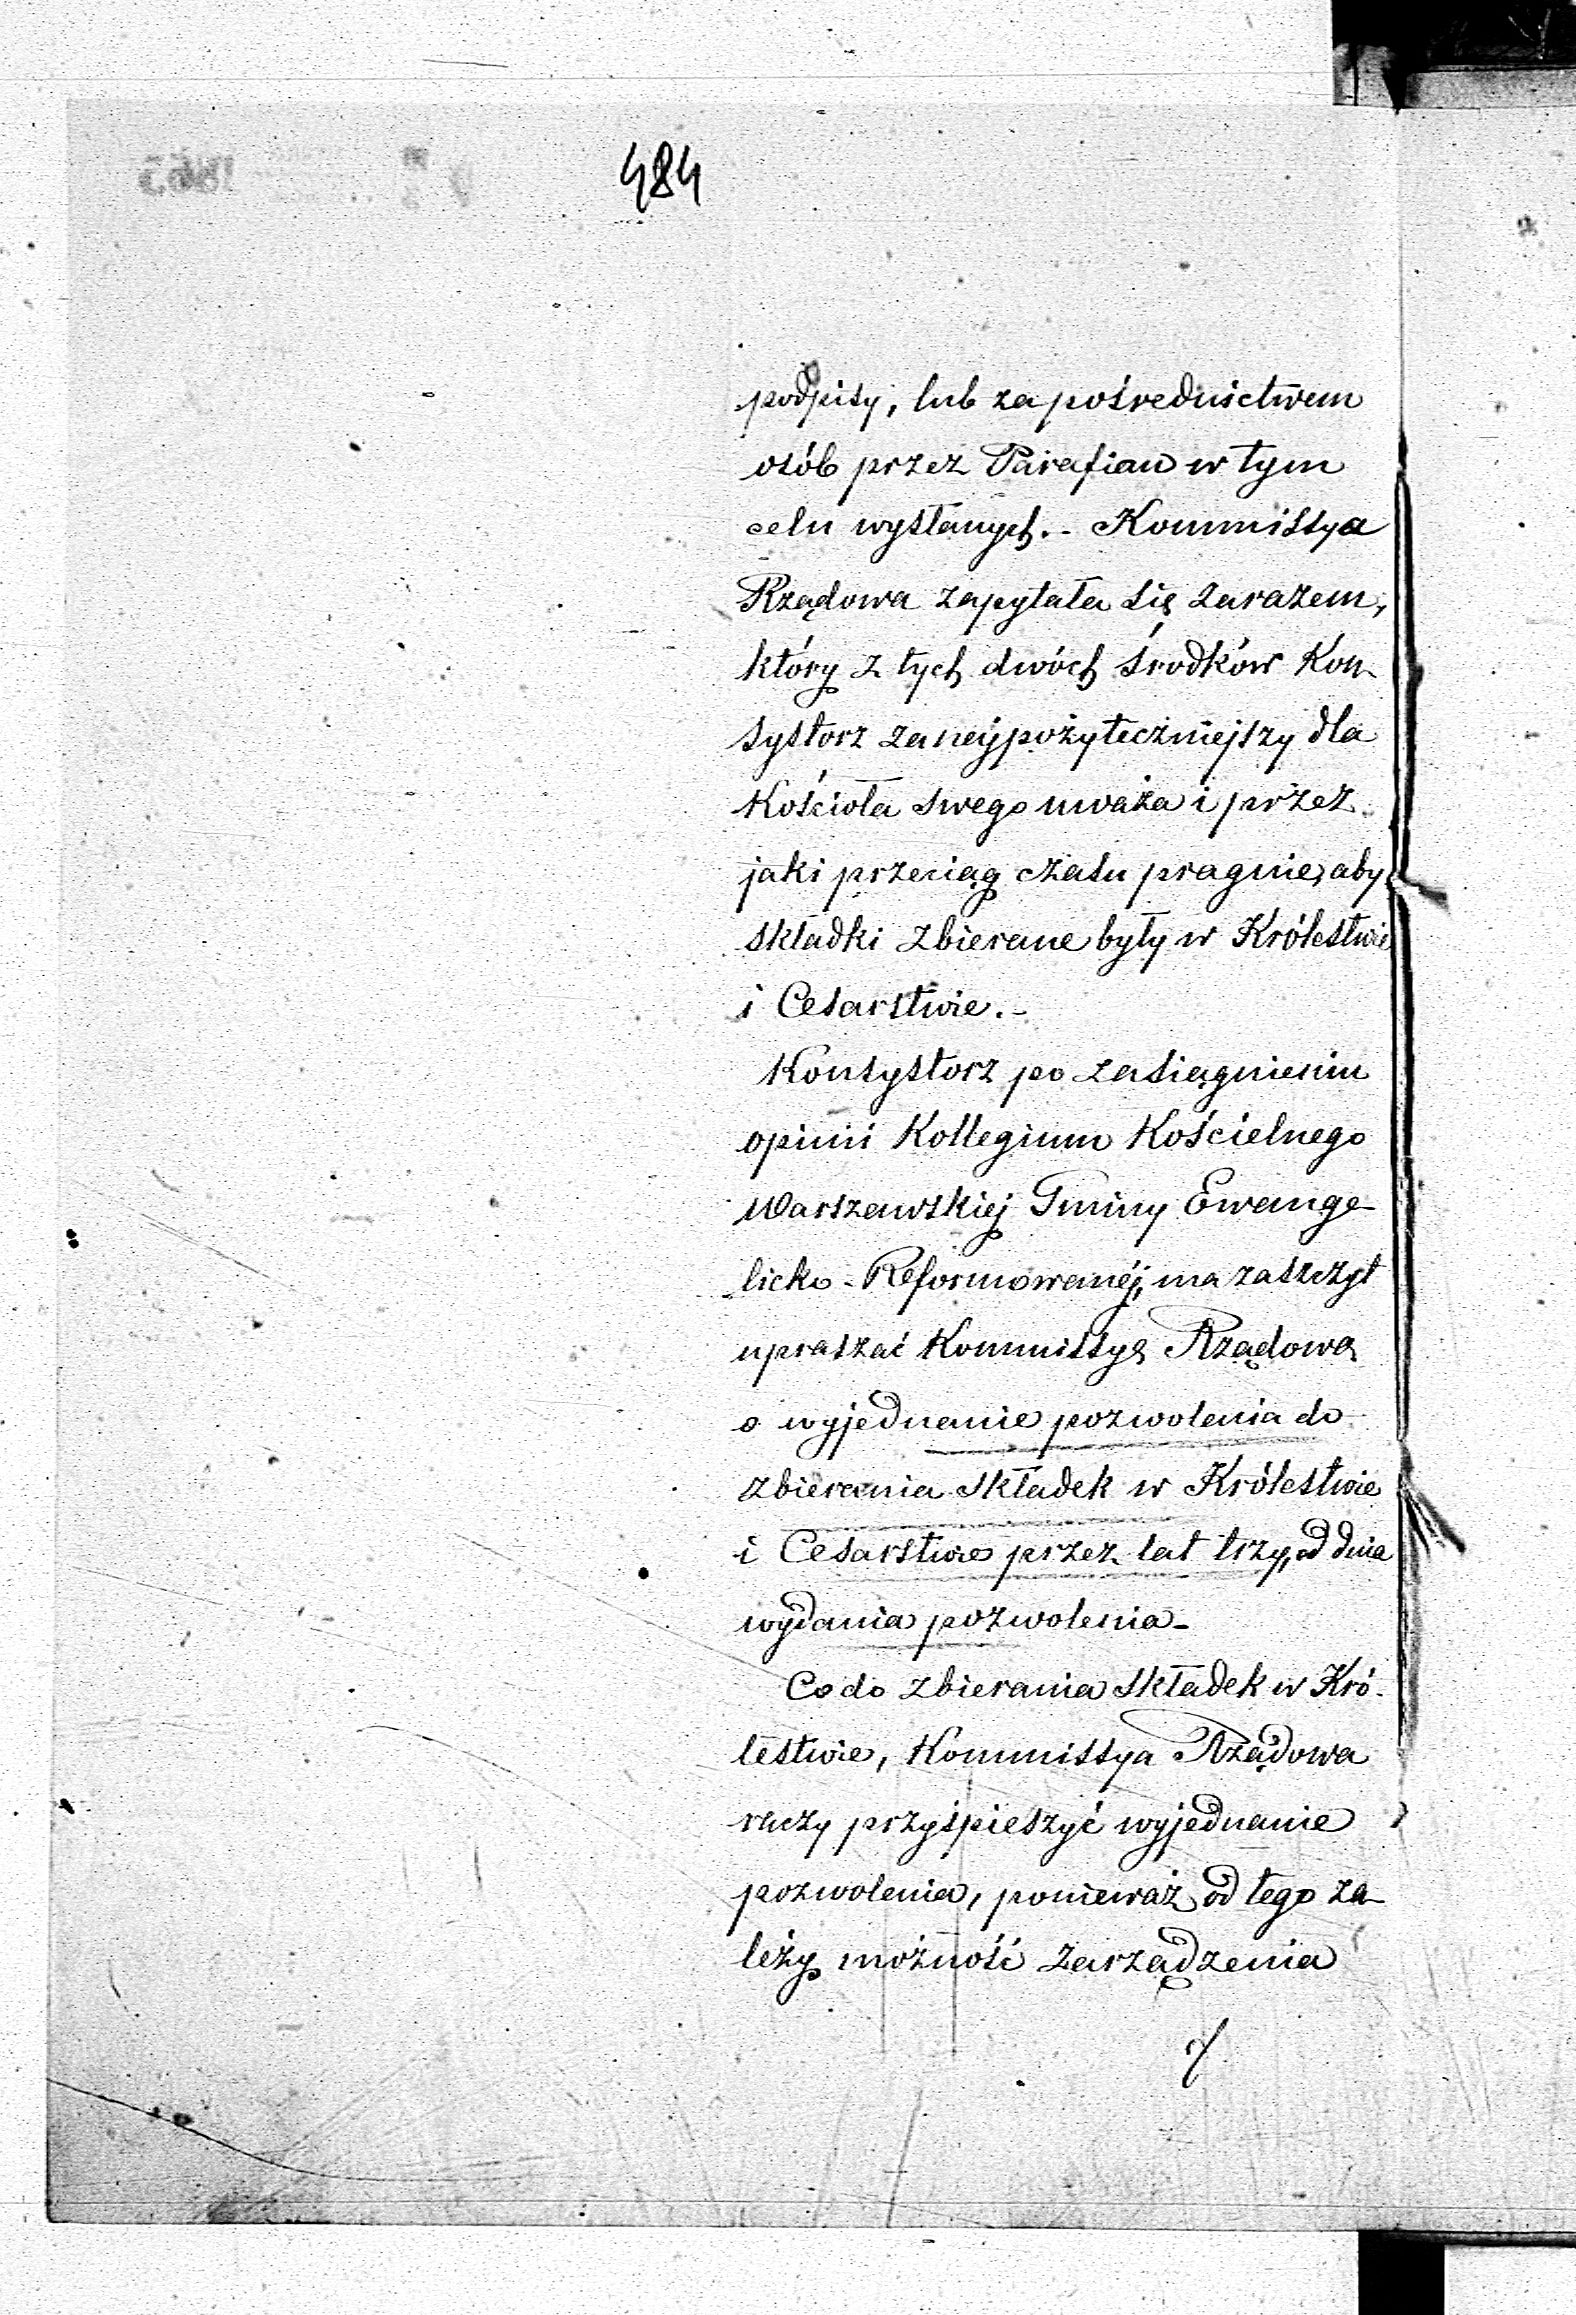 484
podpisy, lub za pośrednictwem
osób przez Parafian w tym
celu wysłanych.- Kommissya
Rządowa zapytała się zarazem,
który z tych dwóch środków Kon-
systorz za najpożyteczniejszy dla
Kościoła swego uważa i przez
jaki przeciąg czasu pragnie, aby
składki zbierane były w Królestwie
i Cesarstwie.-
Konsystorz po zasiągnieniu
opinii Kollegium Kościelnego
Warszawskiej Gminy Ewange-
licko-Reformowanéj, ma zaszczyt
upraszać Kommissyę Rządową
o wyjednanie pozwolenia do
zbierania składek w Królestwie
i Cesarstwie przez lat trzy, od dnia
wydania pozwolenia-
Co do zbierania składek w Kró-
lestwie, Kommissya Rządowa
raczy przyśpieszyć wyjednanie
pozwolenia, ponieważ od tego za-
leży możność zarządzenia